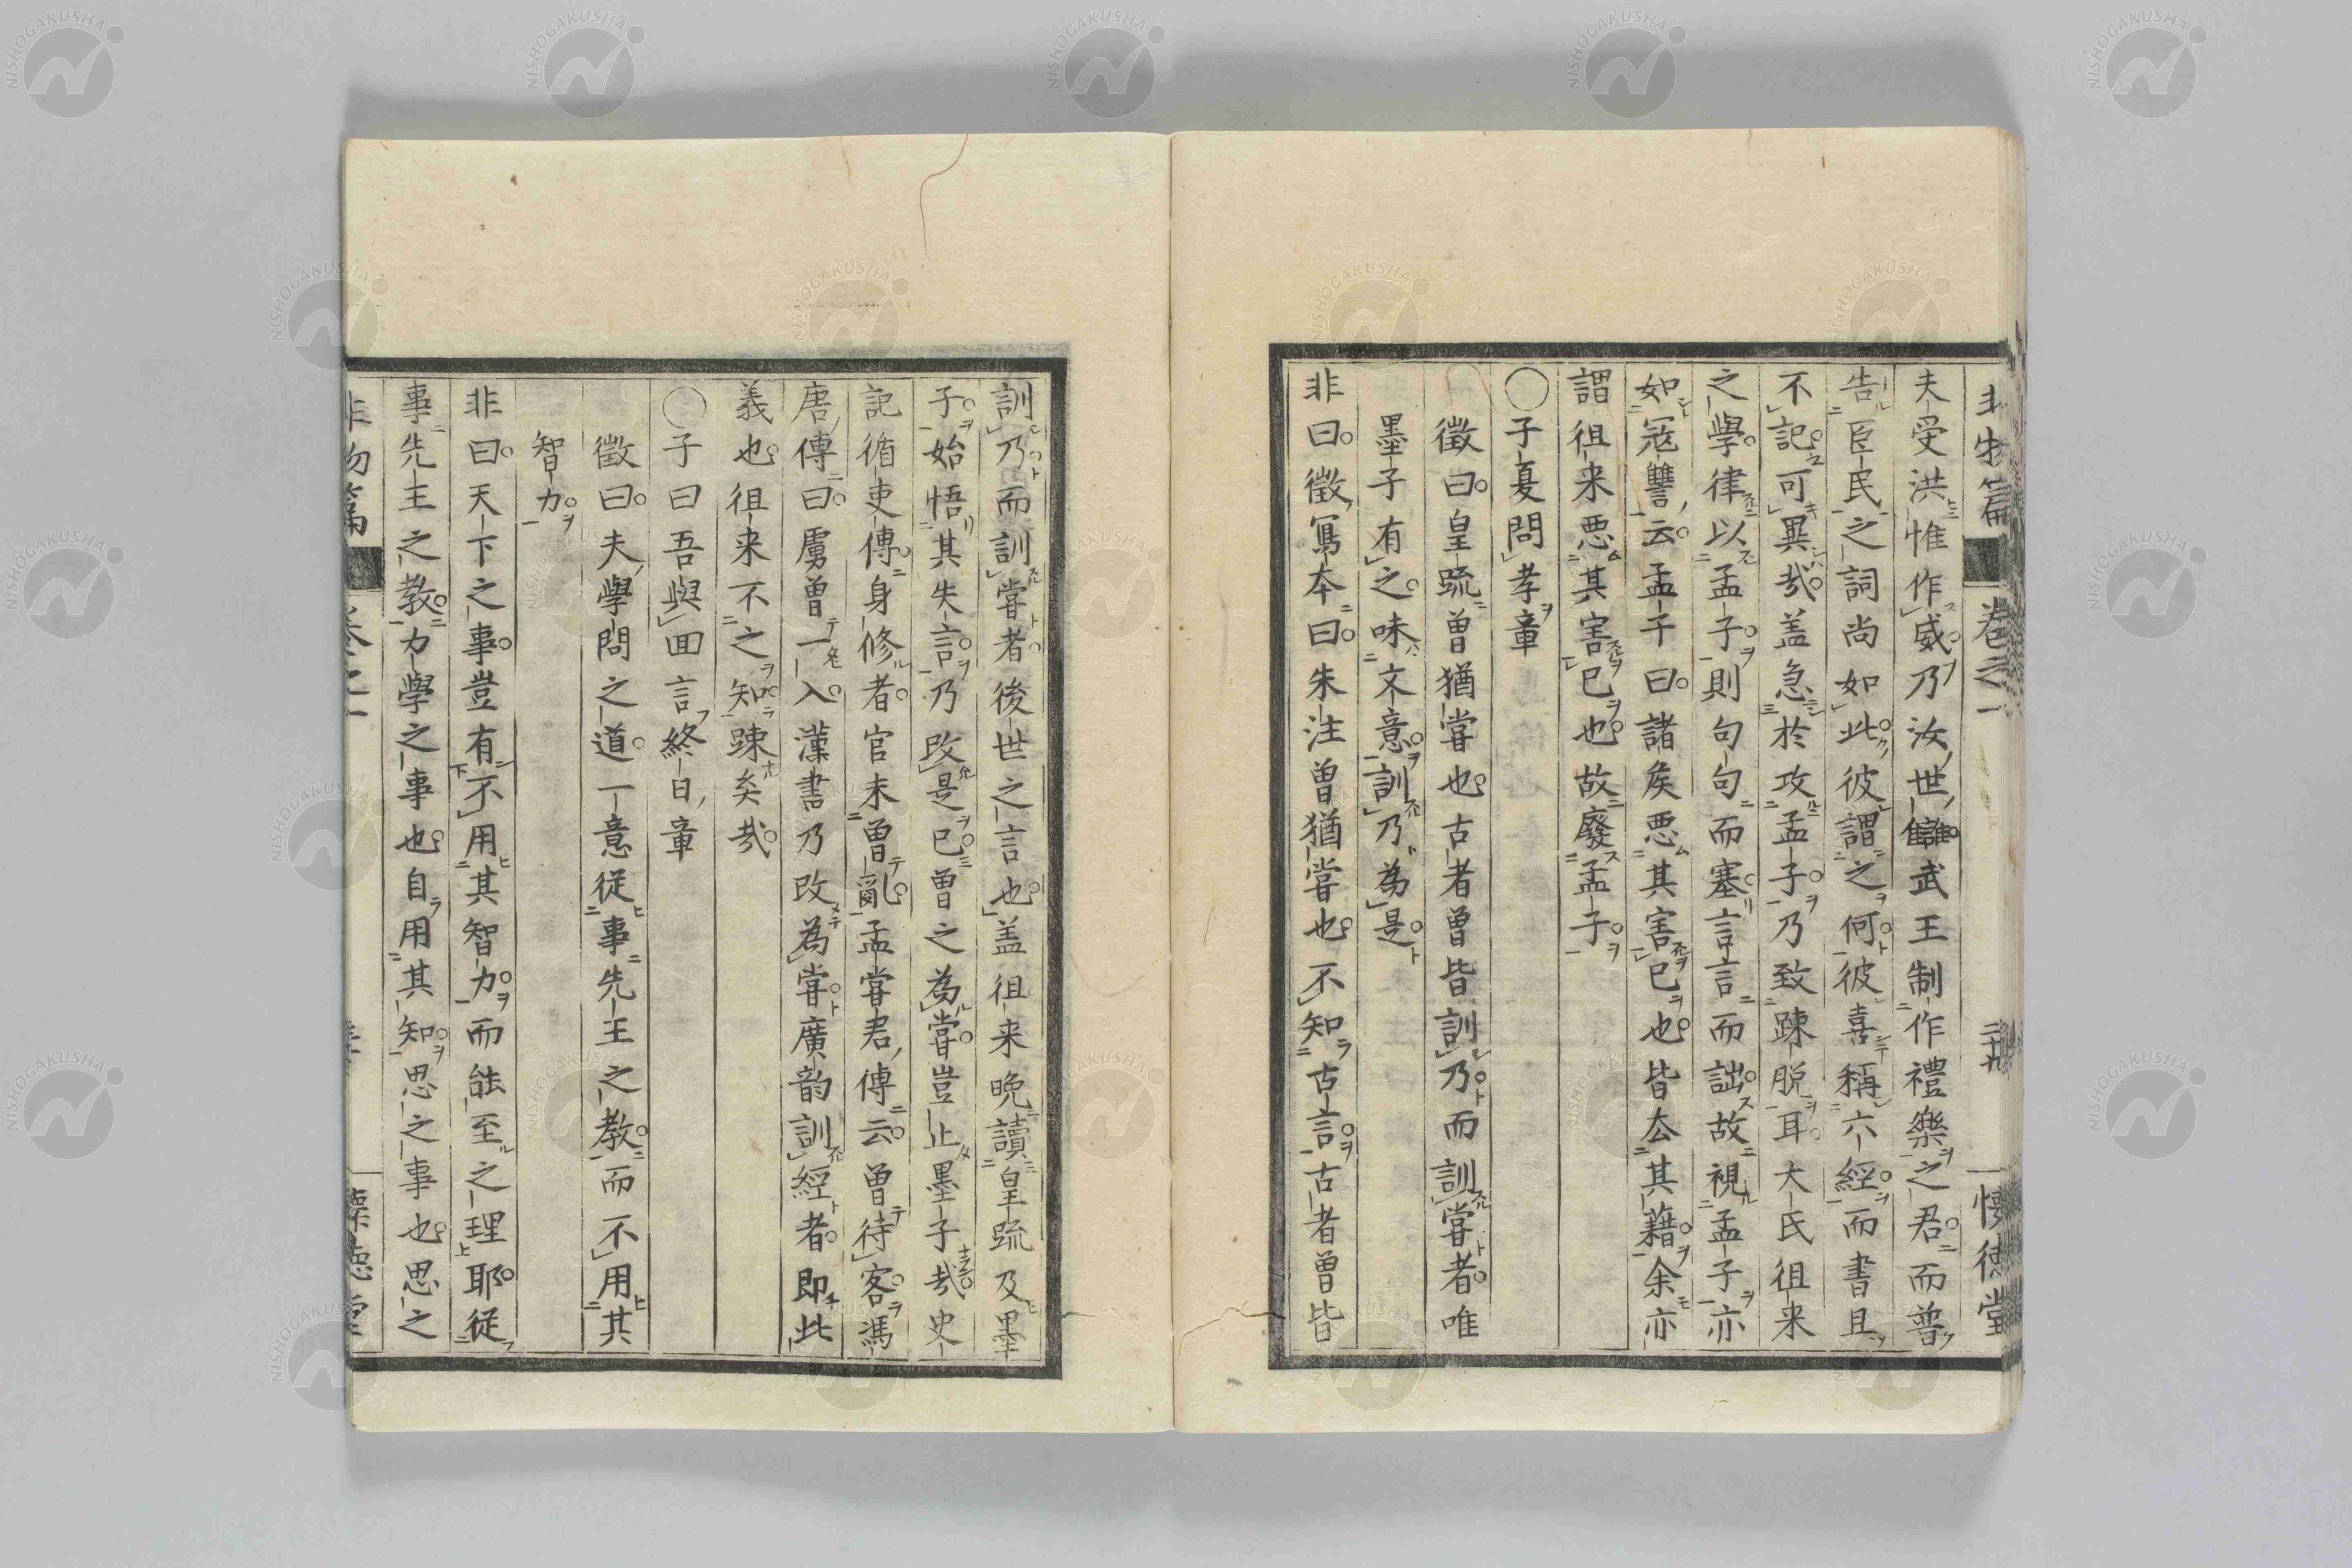 非物篇 卷之一 三十九 懷德堂
夫受洪惟作威乃汝世讎武王制作禮樂之君而普
告臣民之詞尚如此彼謂之何彼喜稱六經而書且
不記可異哉盖急於攻孟子乃致疎脱耳大氏徂来
之學律以孟子則句句而塞言言而詘故視孟子亦
如冦讐云孟子曰諸矦悪其害已也皆去其藉余亦
謂徂来悪其害已也故廢孟子
○子夏問孝章
徵曰皇疏曽猶甞也古者曽皆訓乃而訓甞者唯
墨子有之味文意訓乃為是
非曰徵寫本曰朱注曽猶甞也不知古言古者曽皆
訓乃而訓甞者後世之言也盖徂来晩讀皇疏及墨
子始悟其失言乃改是已曽之為甞豈止墨子哉史
記循吏傳身修者官未曽亂孟甞君傳云曽待客馮
唐傳曰虜曽一入漢書乃改為甞廣韵訓經者即此
義也徂来不之知疎矣哉
○子曰吾與囬言終日章
徵曰夫學問之道一意従事先王之教而不用其
智力
非曰天下之事豈有不用其智力而能至之理耶従
事先王之教力學之事也自用其知思之事也思之
非物篇 卷之一 懷德堂